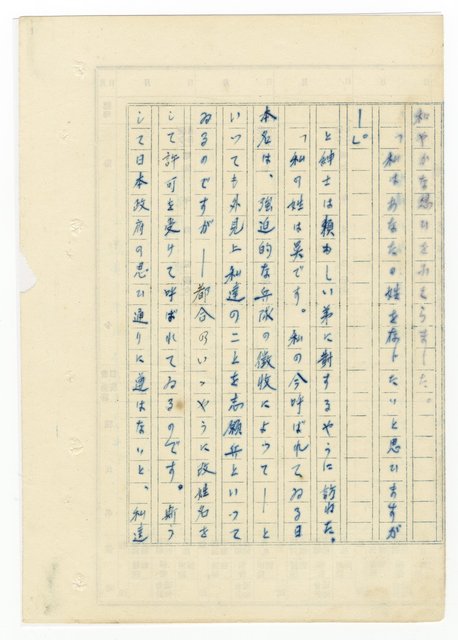 和やかな想ひをふくらました。
「私はあなたの姓を存じたいと思ひますが
ー」。
と紳士は頼もしい弟に對するやうに訪ねた。
「私の姓は吳です。私の今呼ばれてゐる日
本名は、強迫的な兵隊の徴收によってーーと
いっても外見上私達のことを志願兵といって
ゐるのですがー都合のいゝやうに改姓名を
して許可を受けて呼ばれてゐるのです。斯う
して日本政府の思ひ通りに遵はないと、私達